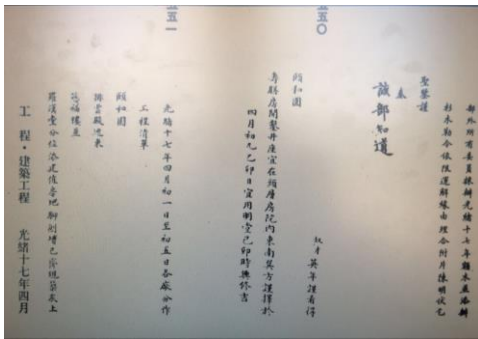 五五〇
部外所有嵩直採辦光緒十七年額木並添辦
杉木勒令依限運解緣由理合附片陳明伏乞
聖鑒謹
奏
該部知道
奴才英年謹看得
頤和園
壽膳房開鑿井座宜在頭層房院內東南巽方謹擇於
四月初九己卯日宜用明堂己卯時興修吉
五五一
光緒十七年四月初一日至初五日各廠分作
工程清單
頤和園
排雲殿迤東
羅漢堂分位添蓋值房地腳刨槽已齊現築灰土
工程・建築工程 光緒十七年四月